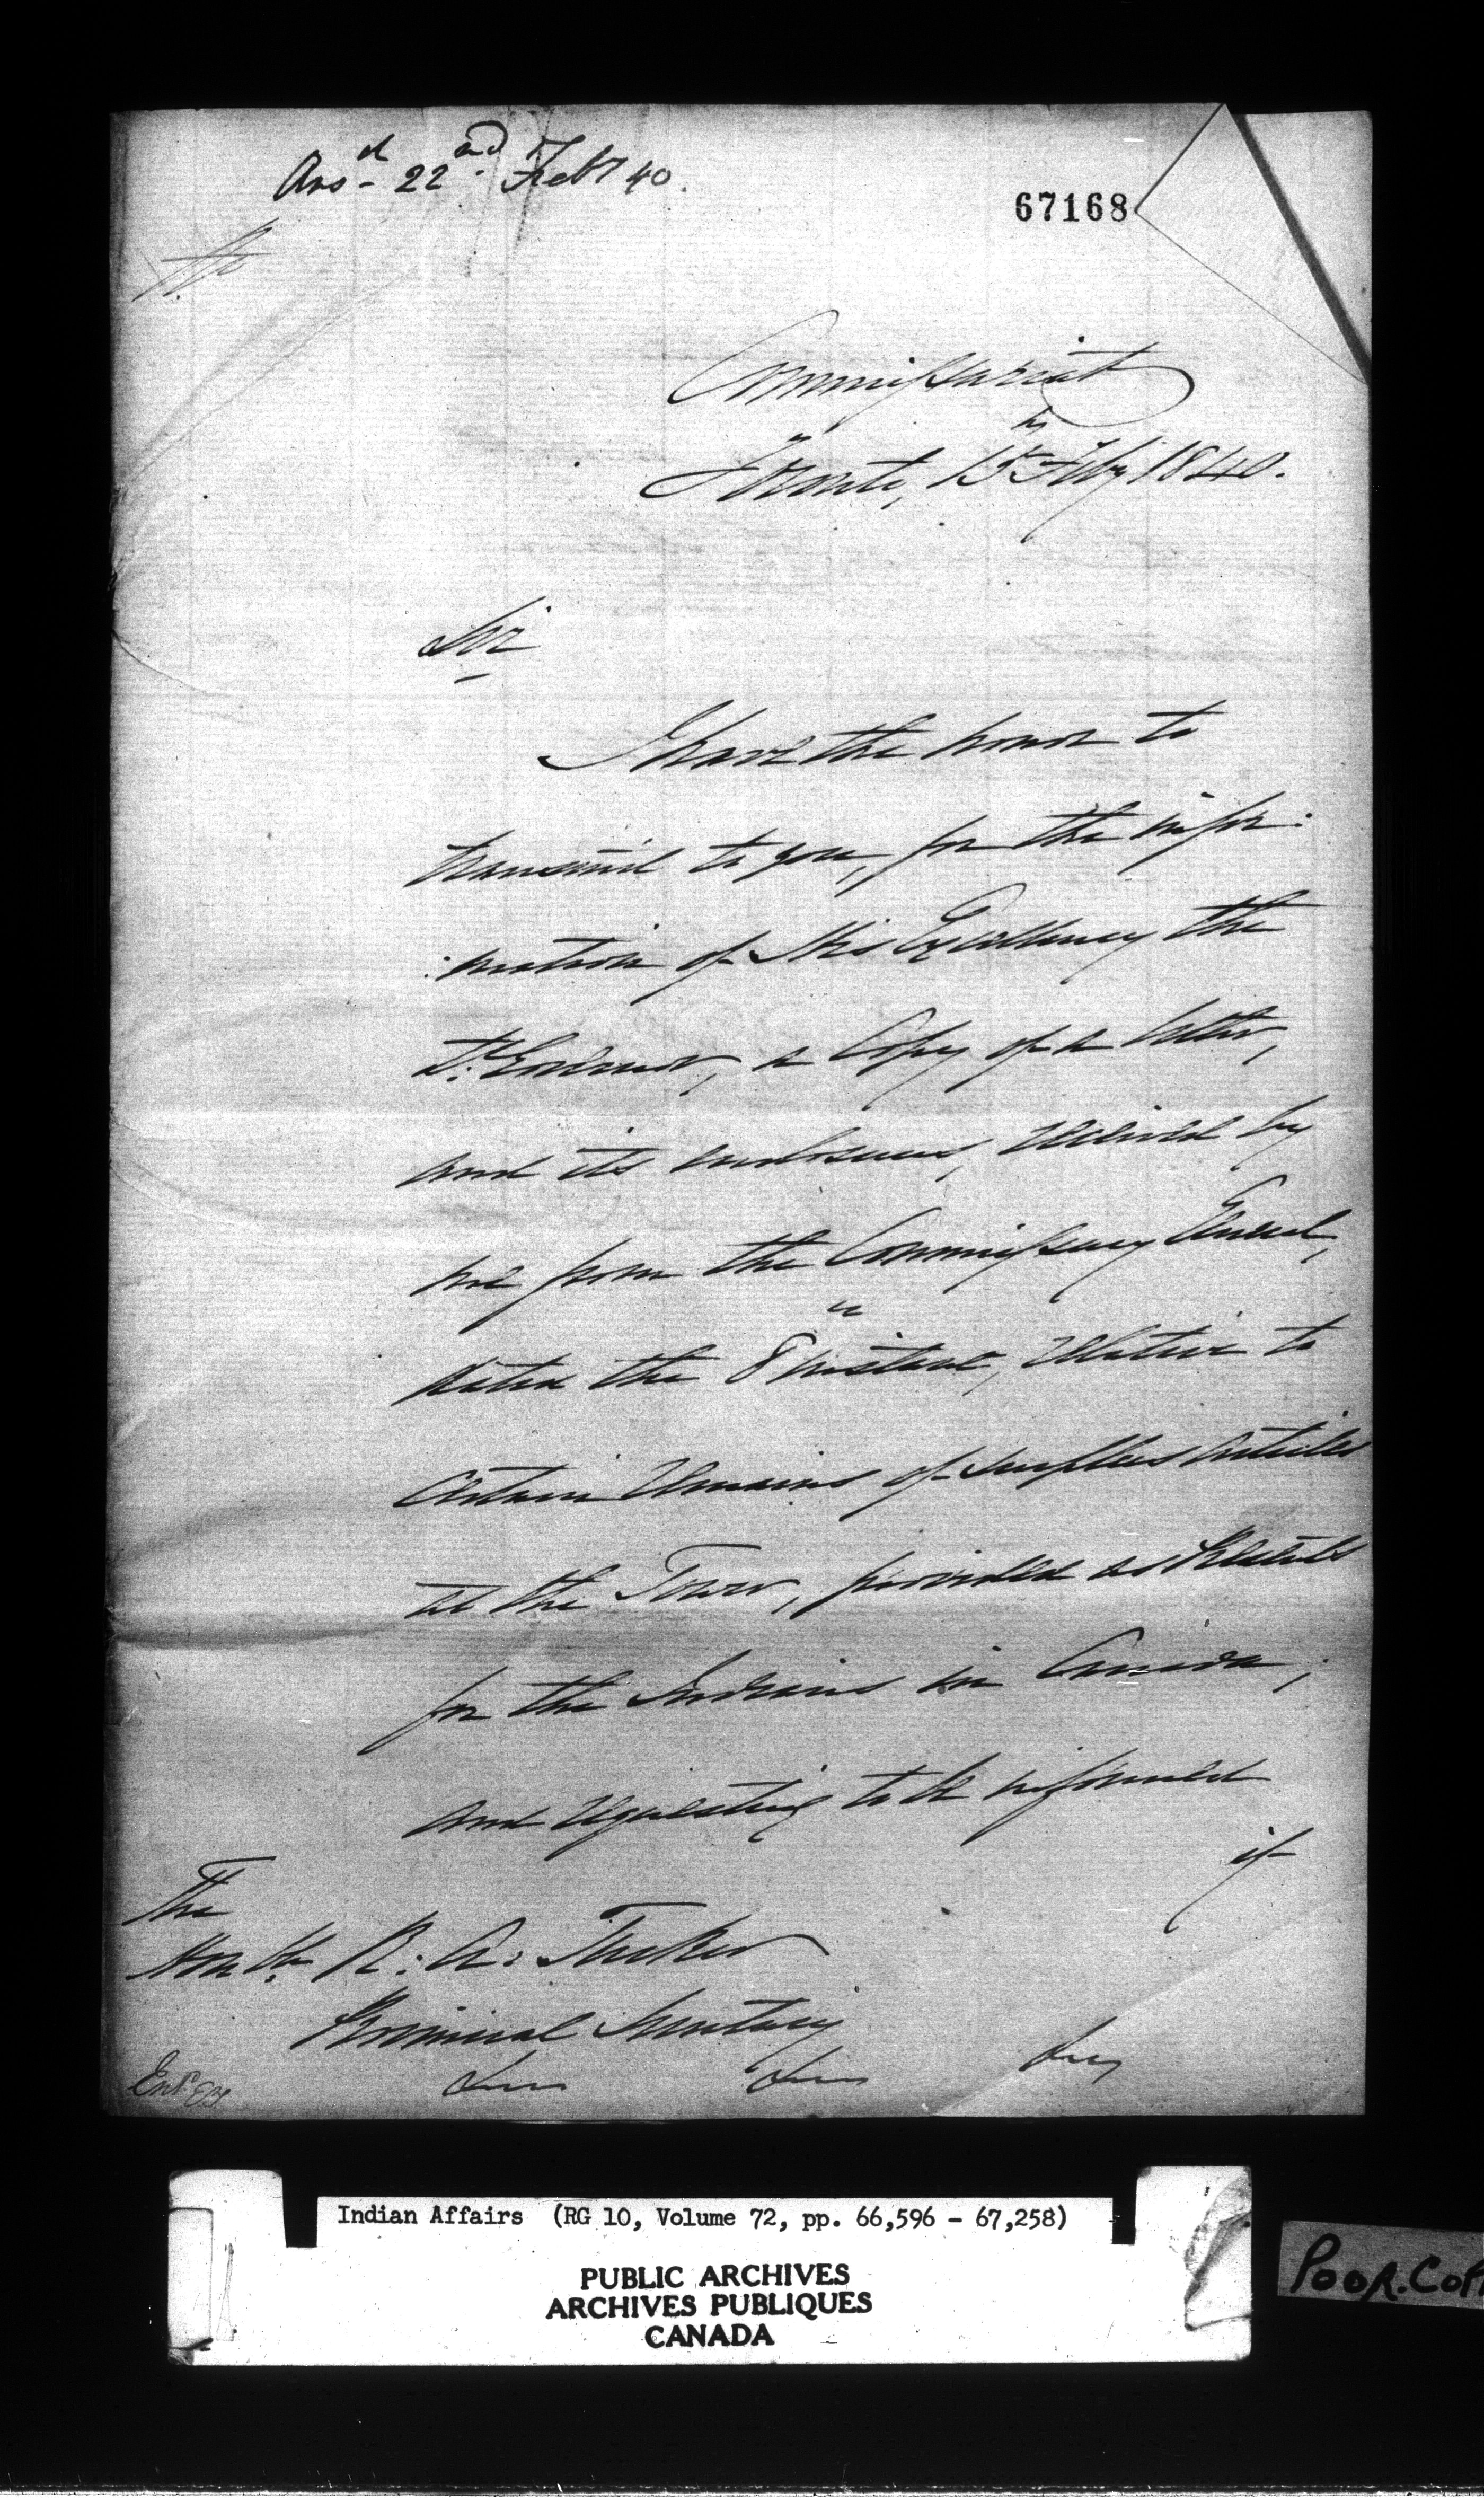 Ansd 22nd Feby 40.
67168
Commissariat
Toronto, 15th Feby 1840.
Sir
I have the honor to
transmit to you, for the infor:
:mation of His Excellency the
Lt. Governor, a Copy of a letter,
and its enclosures, received by
me from the Commissary General,
dated the 8th instant, relative to
certain remains of surplus articles
at the Tower, provided as Presents
for the Indians in Canada;
and requesting to be informed
if
The
Honble. R: A: Tucker
Provincial Secretary
Indian Affairs (RG 10, Volume 72, pp. 66,596 - 67,258)
PUBLIC ARCHIVES
ARCHIVES PUBLIQUES
CANADA
POOR.COP